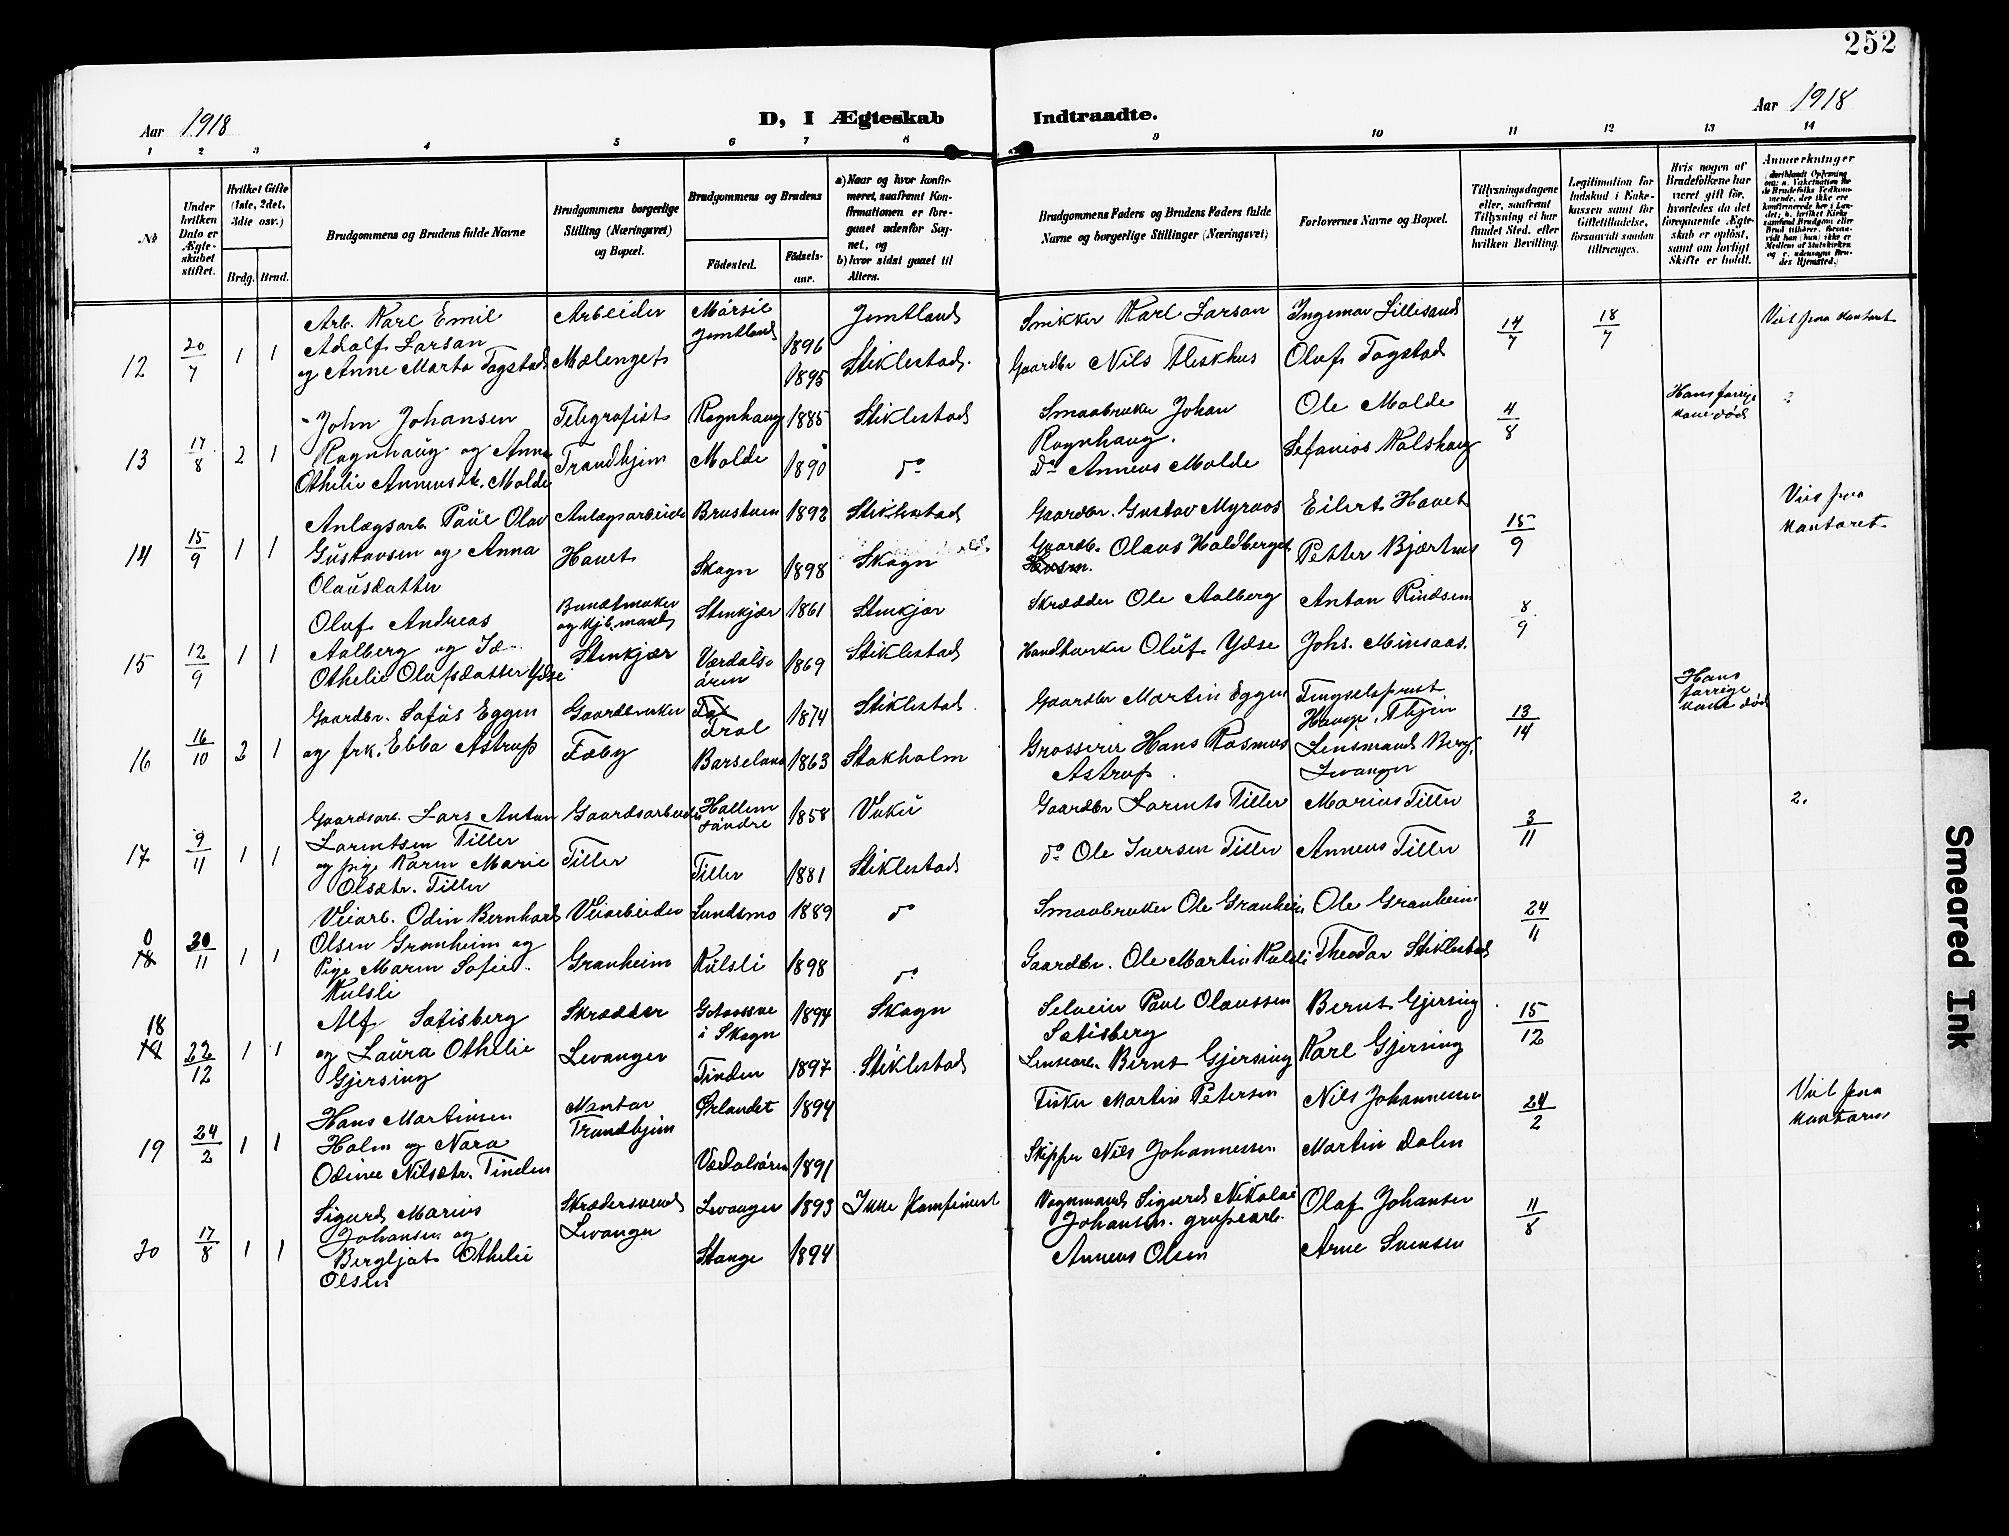 252
Aar 1918
D, I Ægteskab Indtraadte.
Aar 1918
1 2 3 4 5 6 7 8 9 10 11 12 13 14
No
Under
hvilken
Dato er
Ægte-
skabet
stiftet.
Hvilket Gifte
(1ste, 2det,
3die osv.)
Brdg. Brud.
Brudgommens og Brudens fulde Navne
Brudgommens borgerlige
Stilling (Næringsvei)
og Bopæl.
Brudgommens og Brudens
Fødested.
Fødsels-
aar.
a) Naar og hvor konfir-
meret, saafremt Kon-
firmationen er fore-
gaaet udenfor Sog-
net, og
b) hvor sidst gaaet til
Alters.
Brudgommens Faders og Brudens Faders fulde
Navne og borgerlige Stillinger (Næringsvei)
Forlovernes Navne og Bopæl.
Tillysningsdagene
eller, saafremt
Tillysning ei har
fundet Sted, efter
hvilken Bevilling.
Legitimation for
Indskud i Enke-
kassen samt for
Giftetilladelse,
forsaavidt saadan
tiltrænges.
Hvis nogen af
Brudefolkene har
været gift før,
hvorledes da det
foregaaende Ægte-
skab er opløst,
samt om lovligt
Skifte er holdt.
Anmærkninger
12 20/7 1 1
Arb. Karl Emil
Adolf Larsan
og Anne Marta Tagstad
Arbeider
Mælenget
Mörsil
Jemtland
1896
1895
Jemtland
Stiklestad.
Snikker Karl Larsan
Gaardbr Nils Fleskhus
Ingemar Lillesand
Olaf Tagstad
14/7
18/7
Viet paa kontoret
13 17/8 2 1
John Johansen
Rognhaug og Anna
Othelie Anneusdt. Molde
Telegrafist
Trondhjem
Rognhaug
Molde
1885
1890
Stiklestad
do
Smaabruker Johan
Rognhaug.
do Anneus Molde
Ole Molde
Sefanias Kalshaug
4/8
Hans forrige
kone död
14 15/9 1 1
Anlægsarb. Paul Olav
Gustavsen og Anna
Olausdatter
Anlægsarbeider
Havet
Brustuen
Skogn
1892
1898
Stiklestad
Skogn
Gaardbr. Gustav Myraas
Gaardb. Olaus Holdberget
Eilert Havet
Petter Bjartnes
15/9
Viet paa
kontoret
15 12/9 1 1
Olaf Andreas
Aalberg og Ida
Othelie Olafsdatter Ydse
Bundtmaker
og kjbmand
Stenkjær
Stenkjær
Værdals-
ören
1861
1869
Stenkjær
Stiklestad
Skrædder Ole Aalberg
Handtverker Oluf Ydse
Anton Rindsem
Johs. Minsaas.
8/9
16 16/10 2 1
Gaardbr. Sofus Eggen
og frk. Ebba Astrup
Gaardbruker
Fæby
Frol
Barselona
1874
1863
Stiklestad.
Stokholm
Gaardbr Martin Eggen
Grosserer Hans Rasmus
Astrup.
Fængselsprest
Hauge, Thjem
Lensmand Berg,
Levanger
13/14
Hans
forrige
kone död
17 9/11 1 1
Gaardsarb. Lars Anton
Larentsen Tiller
og pige Karen Marie
Olsdtr. Tiller
Gaardsarbeider
Tiller
Hallem
söndre
Tiller
1858
1881
Vuku
Stiklestad
Gaardbr Larents Tiller
do Ole Iversen Tiller
Marius Tiller
Anneus Tiller
3/11
2.
0 18 30/11 1 1
Veiarb. Odin Bernhard
Olsen Granheim og
Pige Maren Sofie
Kulsli
Veiarbeider
Granheim
Lundsmo
Kulsli
1889
1898
do
do
Smaabruker Ole Granheim
Gaardbr. Ole Martin Kulsli
Ole Granheim
Theodor Stiklestad
24/11
18 19 22/12 1 1
Alf Sætisberg
og Laura Othelie
Gjersing
Skrædder
Levanger
i Skogn
Tinden
1894
1897
Skogn
Stiklestad
Selveier Paul Olaussen
Sætisberg
Lensearb. Bernt Gjersing
Bernt Gjersing
Karl Gjersing
15/12
19 24/2 1 1
Hans Martinsen
Holm og Nora
Odine Nilsdtr. Tinden
Montör
Trondhjem
Ørlandet
Værdalsören
1894
1891
Fisker Martin Petersen
Skipper Nils Johannessen
Nils Johannessen
Martin Dalen
24/2
Viet paa
kontoret
20 17/8 1 1
Sigurd Marius
Johansen og
Bergljot Othelie
Olsen
Skrædersvend
Levanger
Levanger
Stange
1893
1894
Ikke konfirmert
Vognmand Sigurd Nikolai
Johansen. grubearb.
Anneus Olsen
Olaf Johansen
Arne Svensen
11/8
Smeared Ink